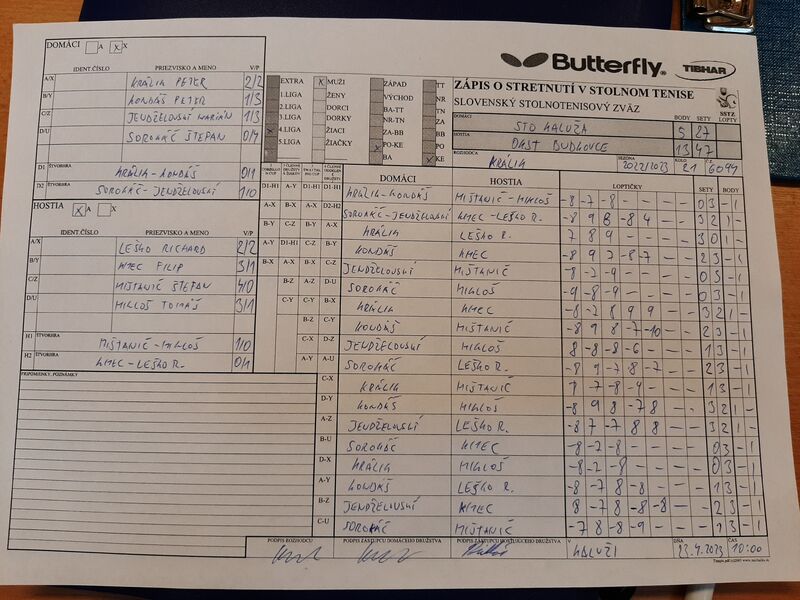 DOMÁCI A X X
IDENT.ČÍSLO PRIEZVISKO A MENO V/P
A/X KRÁLIA PETER 2/2
B/Y KONDÁŠ PETER 1/3
C/Z JENDŽELOVSKÍ MARIÁN 1/3
D/U SOROKÁČ ŠTEFAN 0/4
D1 ŠTVORHRA KRÁLIA-KONDÁŠ 0/1
D2 ŠTVORHRA SOROKÁČ-JENDŽELOVSKÍ 1/0
HOSTIA X A X
IDENT.ČÍSLO PRIEZVISKO A MENO V/P
A/X LEŠKO RICHARD 2/2
B/Y KMEC FILIP 3/1
C/Z MIŠTANIČ ŠTEFAN 4/0
D/U MIKLOŠ TOMÁŠ 3/1
H1 ŠTVORHRA MIŠTANIČ-MIKLOŠ 1/0
H2 ŠTVORHRA KMEC-LEŠKO R. 0/1
PRIPOMIENKY, POZNÁMKY
EXTRA X MUŽI ZÁPAD TT
1.LIGA ŽENY VÝCHOD NR
2.LIGA DORCI BA-TT TN
3.LIGA DORKY NR-TN ZA
X 4.LIGA ŽIACI ZA-BB BB
5.LIGA ŽIAČKY X PO-KE PO
BA X KE
Butterfly TIBHAR
ZÁPIS O STRETNUTÍ V STOLNOM TENISE
SLOVENSKÝ STOLNOTENISOVÝ ZVÄZ
SSTZ
DOMÁCI STO KALUŽA BODY SETY LOPTY
5 27
HOSTIA OKST BUDKOVCE 13 47
ROZHODCA KRÁLIA SEZÓNA 2022/2023 KOLO 21 Č.Z. 6094
DOMÁCI HOSTIA LOPTIČKY SETY BODY
D1-H1 A-Y A-Y D1-H1 KRÁLIA-KONDÁŠ MIŠTANIČ-MIKLOŠ -8 -7 -8 - - 0 3 - 1
A-X B-X A-X D2-H2 SOROKÁČ-JENDŽELOVSKÍ KMEC-LEŠKO R. -8 9 8 -8 4 3 2 1 -
B-Y C-Z B-Y A-X KRÁLIA LEŠKO R. 7 8 9 - - 3 0 1 -
A-Y D1-H1 C-Z B-Y KONDÁŠ KMEC -8 9 7 -8 -7 2 3 - 1
B-X A-X B-X C-Z JENDŽELOVSKÍ MIŠTANIČ -8 -2 -9 - - 0 3 - 1
B-Z A-Z D-U SOROKÁČ MIKLOŠ -9 -8 -9 - - 0 3 - 1
C-Y C-Y B-X KRÁLIA KMEC -8 -2 8 9 9 3 2 1 -
B-Z C-Y KONDÁŠ MIŠTANIČ -8 9 8 -7 -10 2 3 - 1
C-X D-Z JENDŽELOVSKÍ MIKLOŠ 8 -8 -8 -6 - 1 3 - 1
A-Y A-U SOROKÁČ LEŠKO R. -8 9 -7 8 -7 2 3 - 1
C-X KRÁLIA MIŠTANIČ 7 -7 -8 -9 - 1 3 - 1
D-Y KONDÁŠ MIKLOŠ -8 9 8 -7 8 3 2 1 -
A-Z JENDŽELOVSKÍ LEŠKO R. -8 7 -7 8 8 3 2 1 -
B-U SOROKÁČ KMEC -8 -7 -8 - - 0 3 - 1
D-X KRÁLIA MIKLOŠ -8 -2 -8 - - 0 3 - 1
A-Y KONDÁŠ LEŠKO R. -8 -7 8 -8 - 1 3 - 1
B-Z JENDŽELOVSKÍ KMEC 8 -7 8 -8 -8 2 3 - 1
C-U SOROKÁČ MIŠTANIČ -7 8 -8 -9 - 1 3 - 1
PODPIS ROZHODCU PODPIS ZÁSTUPCU DOMÁCEHO DRUŽSTVA PODPIS ZÁSTUPCU HOSŤUJÚCEHO DRUŽSTVA V KALUŽI DŇA 23.4.2023 ČAS 10:00